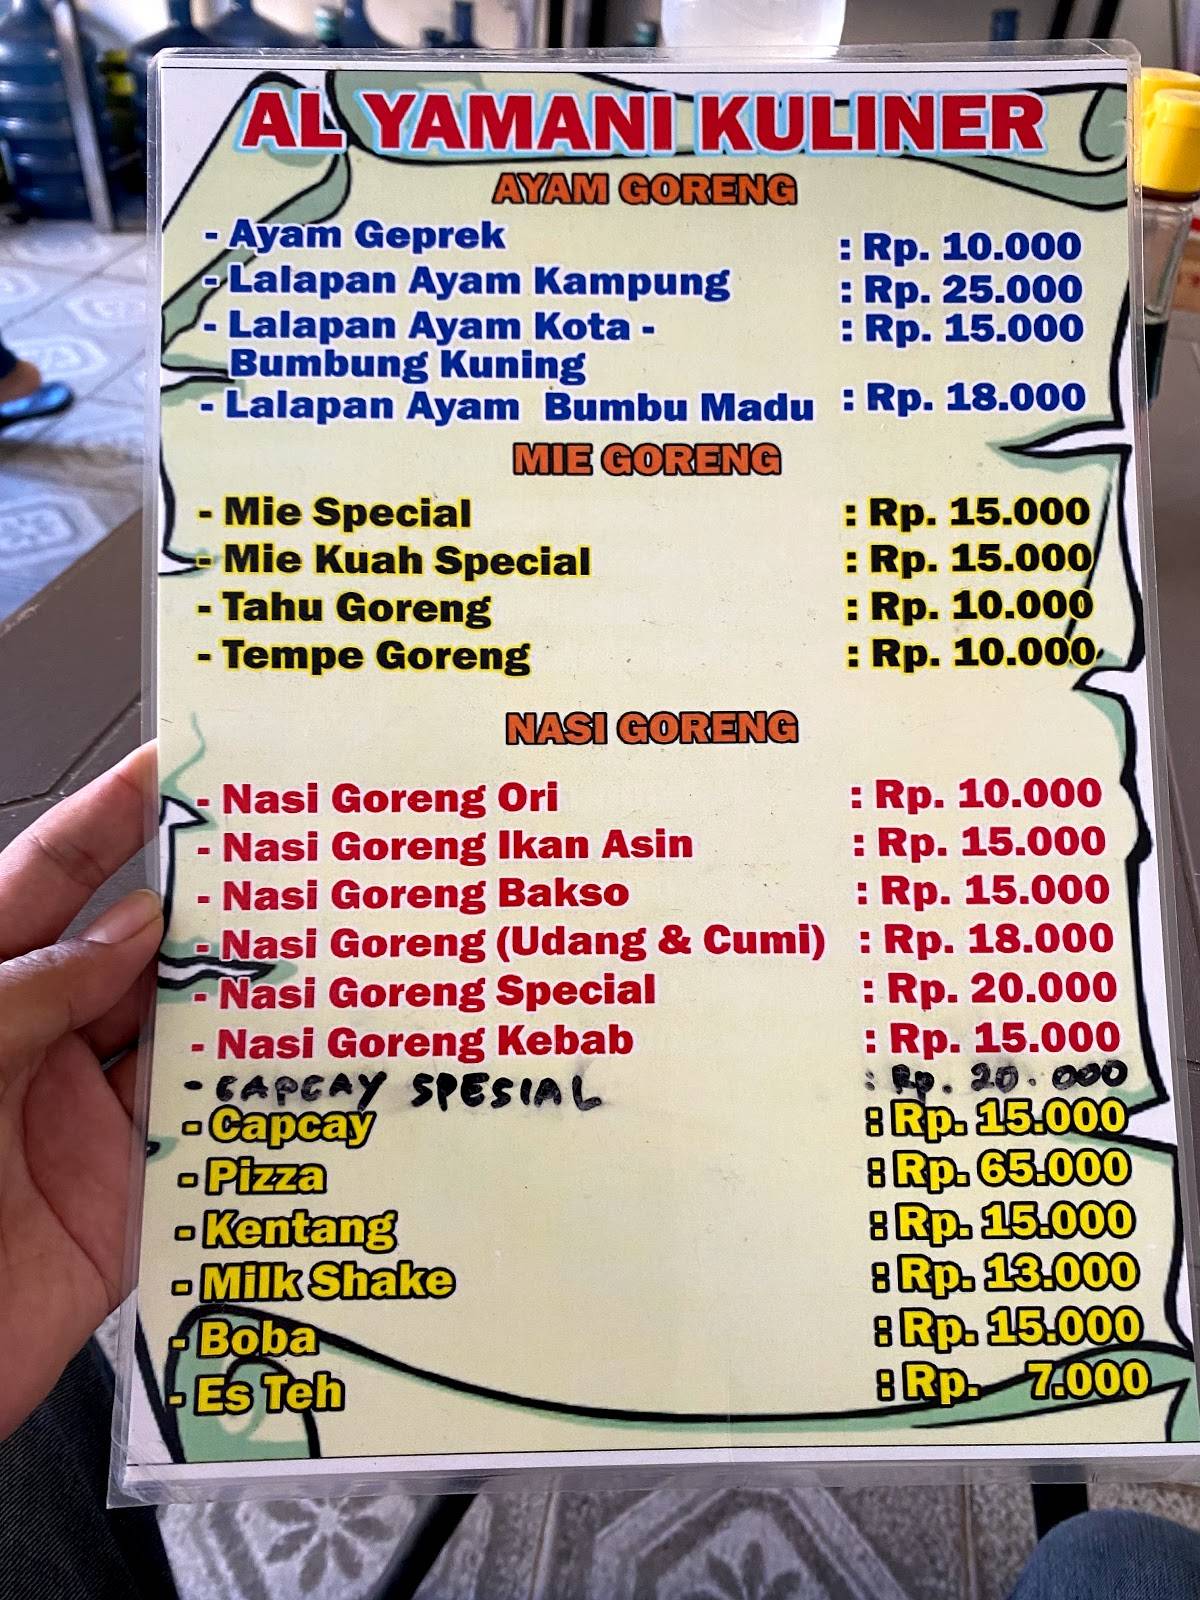 AL YAMANI KULINER
AYAM GORENG
- Ayam Geprek : Rp. 10.000
- Lalapan Ayam Kampung : Rp. 25.000
- Lalapan Ayam Kota - : Rp. 15.000
Bumbung Kuning
- Lalapan Ayam Bumbu Madu : Rp. 18.000
MIE GORENG
- Mie Special : Rp. 15.000
- Mie Kuah Special : Rp. 15.000
- Tahu Goreng : Rp. 10.000
- Tempe Goreng : Rp. 10.000
NASI GORENG
- Nasi Goreng Ori : Rp. 10.000
- Nasi Goreng Ikan Asin : Rp. 15.000
- Nasi Goreng Bakso : Rp. 15.000
- Nasi Goreng (Udang & Cumi) : Rp. 18.000
- Nasi Goreng Special : Rp. 20.000
- Nasi Goreng Kebab : Rp. 15.000
- CAPCAY SPESIAL : Rp. 20.000
- Capcay : Rp. 15.000
- Pizza : Rp. 65.000
- Kentang : Rp. 15.000
- Milk Shake : Rp. 13.000
- Boba : Rp. 15.000
- Es Teh : Rp. 7.000